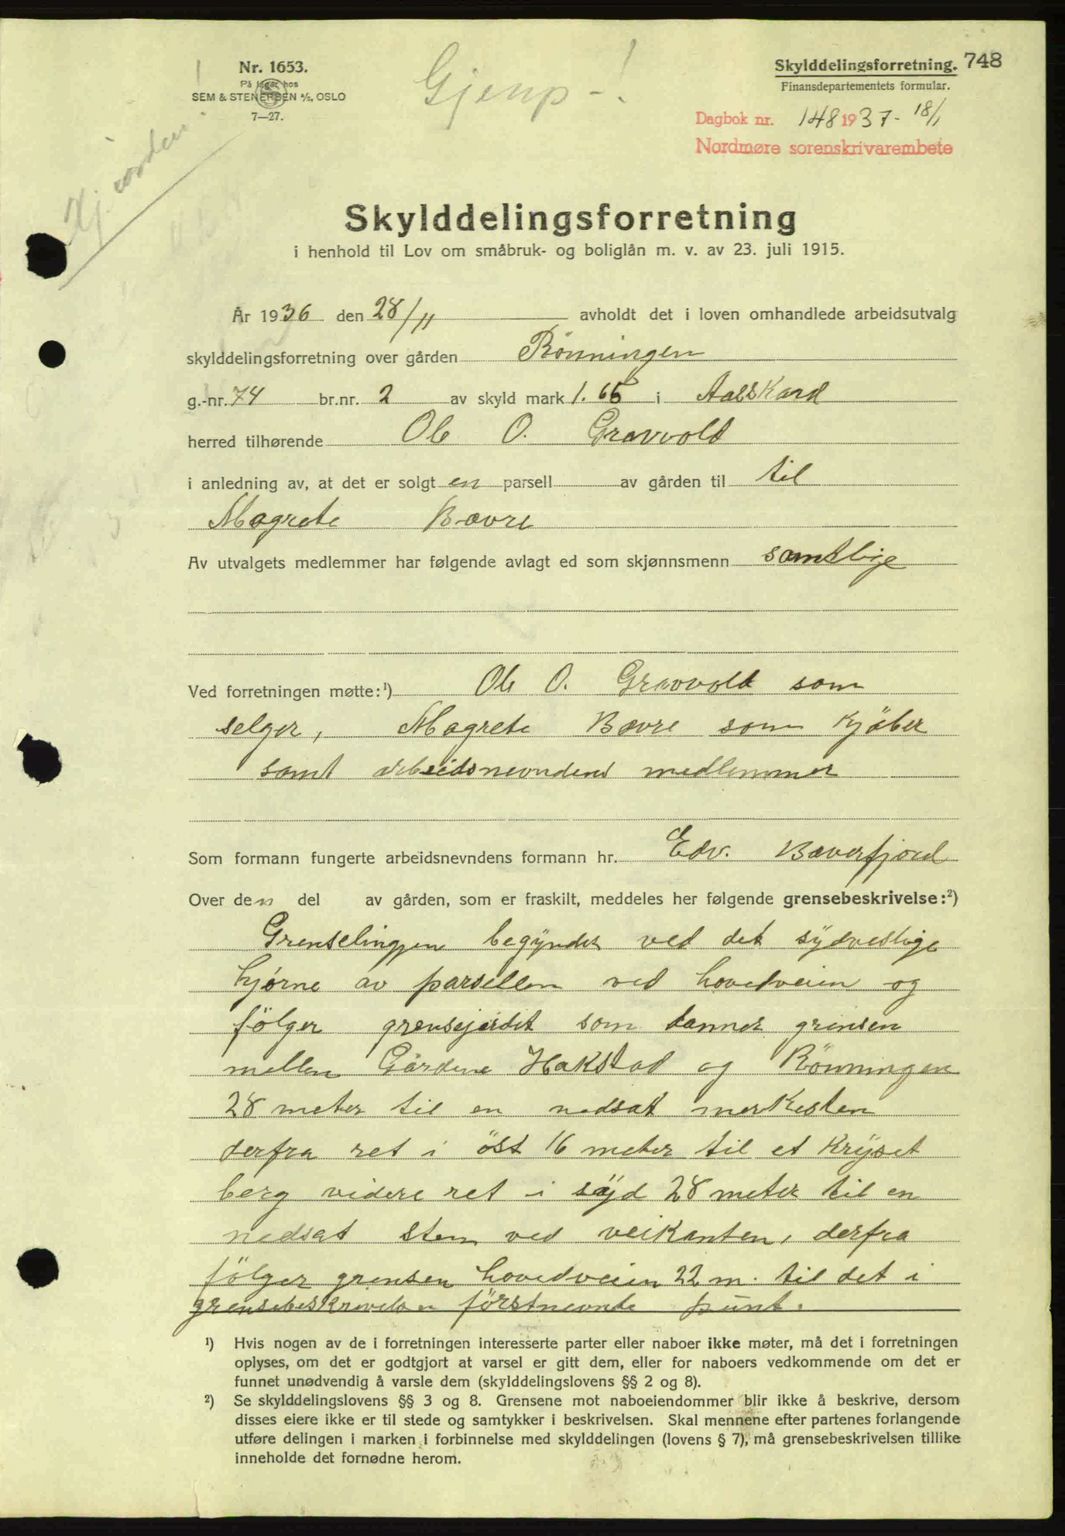 Nr. 1653.
På lager hos
SEM & STENERSEN A/S, OSLO
7—27.
Gjenp-!
Skylddelingsforretning. 748
Finansdepartementets formular.
Dagbok nr. 148 1937 - 18/1
Nordmøre sorenskrivarembete
Skylddelingsforretning
i henhold til Lov om småbruk- og boliglån m. v. av 23. juli 1915.
År 1936 den 28/11 avholdt det i loven omhandlede arbeidsutvalg
skylddelingsforretning over gården Rönningen
g.-nr. 74 br.nr. 2 av skyld mark 1.65 i Aalskard
herred tilhørende Ole O. Gravvold
i anledning av, at det er solgt en parsell av gården til til
Magrete Bævre
Av utvalgets medlemmer har følgende avlagt ed som skjønnsmenn samtlige
Ved forretningen møtte:¹) Ole O. Gravvold som
selger, Magrete Bævre som kjöber
samt arbeidsnevndens medlemmer
Som formann fungerte arbeidsnevndens formann hr. Edv. Bæverfjord
Over den del av gården, som er fraskilt, meddeles her følgende grensebeskrivelse:²)
Grenselinjen begynder ved det sydvestlige
hjörne av parsellen ved hovedveien og
fölger grensejerdet som danner grensen
mellem Gårdene Hakstad og Rönningen
28 meter til en nedsat merkesten
derfra ret i öst 16 meter til et Krysset
berg videre ret i syd 28 meter til en
nedsat sten ved veikanten, derfra
fölger grensen hovedveien 22 m. til det i
grensebeskrivelsen förstnevnte punt.
¹) Hvis nogen av de i forretningen interesserte parter eller naboer ikke møter, må det i forretningen
oplyses, om det er godtgjort at varsel er gitt dem, eller for naboers vedkommende om det er
funnet unødvendig å varsle dem (skylddelingslovens §§ 2 og 8).
²) Se skylddelingslovens §§ 3 og 8. Grensene mot naboeiendommer blir ikke å beskrive, dersom
disses eiere ikke er til stede og samtykker i beskrivelsen. Skal mennene efter partenes forlangende
utføre delingen i marken i forbinnelse med skylddelingen (lovens § 7), må grensebeskrivelsen tillike
inneholde det fornødne herom.